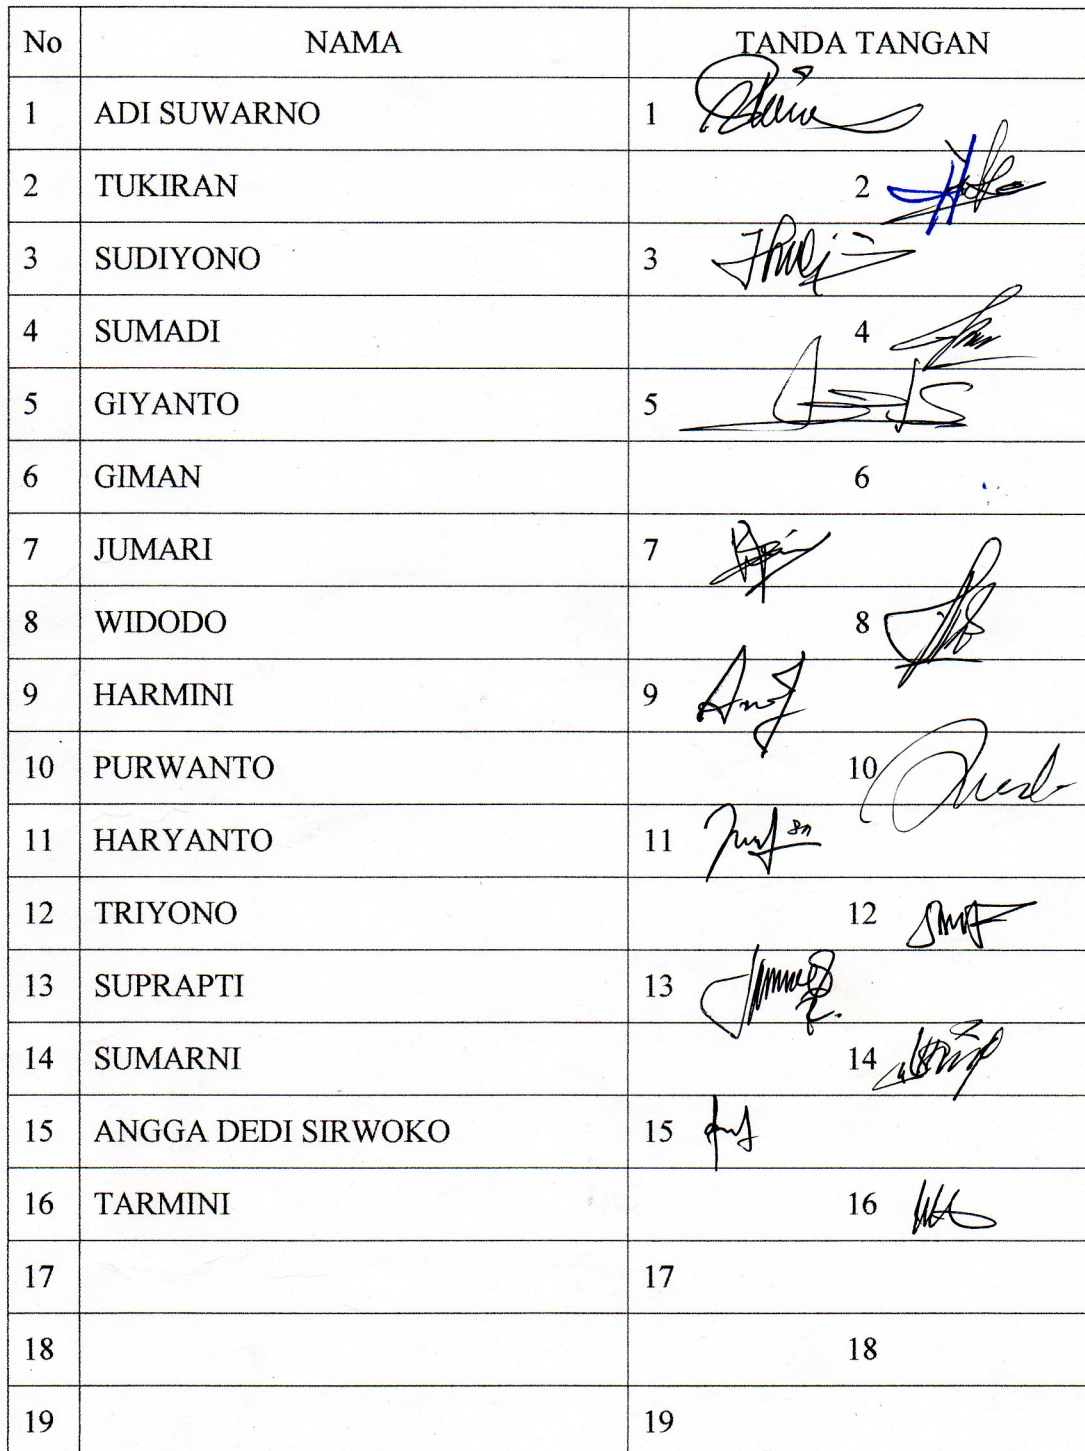 No NAMA TANDA TANGAN
1 ADI SUWARNO 1
2 TUKIRAN 2
3 SUDIYONO 3
4 SUMADI 4
5 GIYANTO 5
6 GIMAN 6
7 JUMARI 7
8 WIDODO 8
9 HARMINI 9
10 PURWANTO 10
11 HARYANTO 11
12 TRIYONO 12
13 SUPRAPTI 13
14 SUMARNI 14
15 ANGGA DEDI SIRWOKO 15
16 TARMINI 16
17 17
18 18
19 19